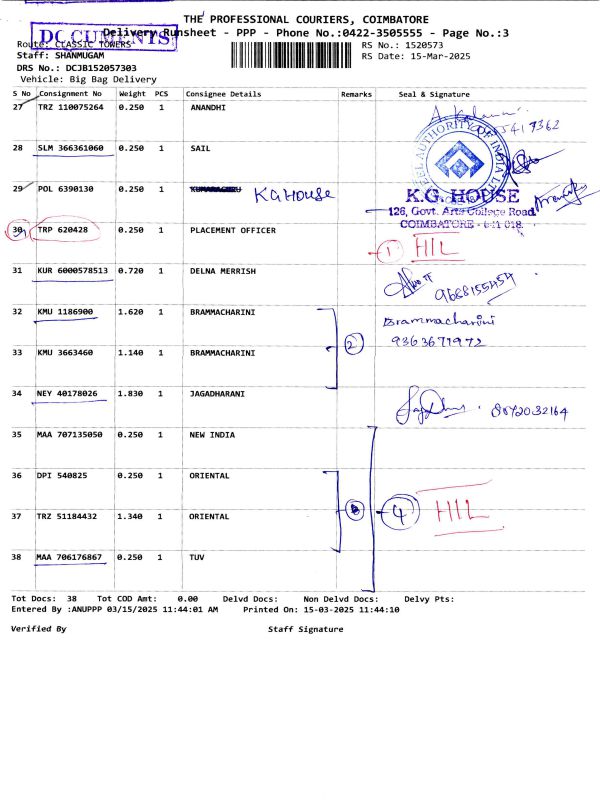 THE PROFESSIONAL COURIERS, COIMBATORE
DOCUMENTS
Delivery Runsheet - PPP - Phone No.:0422-3505555 - Page No.:3
Route: CLASSIC TOWERS
RS No.: 1520573
Staff: SHANMUGAM
RS Date: 15-Mar-2025
DRS No.: DCJB152057303
Vehicle: Big Bag Delivery
S No Consignment No Weight PCS Consignee Details Remarks Seal & Signature
27 TRZ 110075264 0.250 1 ANANDHI
28 SLM 366361060 0.250 1 SAIL
29 POL 6390130 0.250 1 KG House
K.G. HOUSE
126, Govt. Arts College Road
COIMBATORE - 641 018.
30 TRP 620428 0.250 1 PLACEMENT OFFICER
1 HIL
31 KUR 6000578513 0.720 1 DELNA MERRISH
9688155454
32 KMU 1186900 1.620 1 BRAMMACHARINI
Brammacharini
2 9363671972
33 KMU 3663460 1.140 1 BRAMMACHARINI
34 NEY 40178026 1.830 1 JAGADHARANI
35 MAA 707135050 0.250 1 NEW INDIA
36 DPI 540825 0.250 1 ORIENTAL
4 HIL
37 TRZ 51184432 1.340 1 ORIENTAL
38 MAA 706176867 0.250 1 TUV
Tot Docs: 38 Tot COD Amt: 0.00 Delvd Docs: Non Delvd Docs: Delvy Pts:
Entered By :ANUPPP 03/15/2025 11:44:01 AM Printed On: 15-03-2025 11:44:10
Verified By Staff Signature